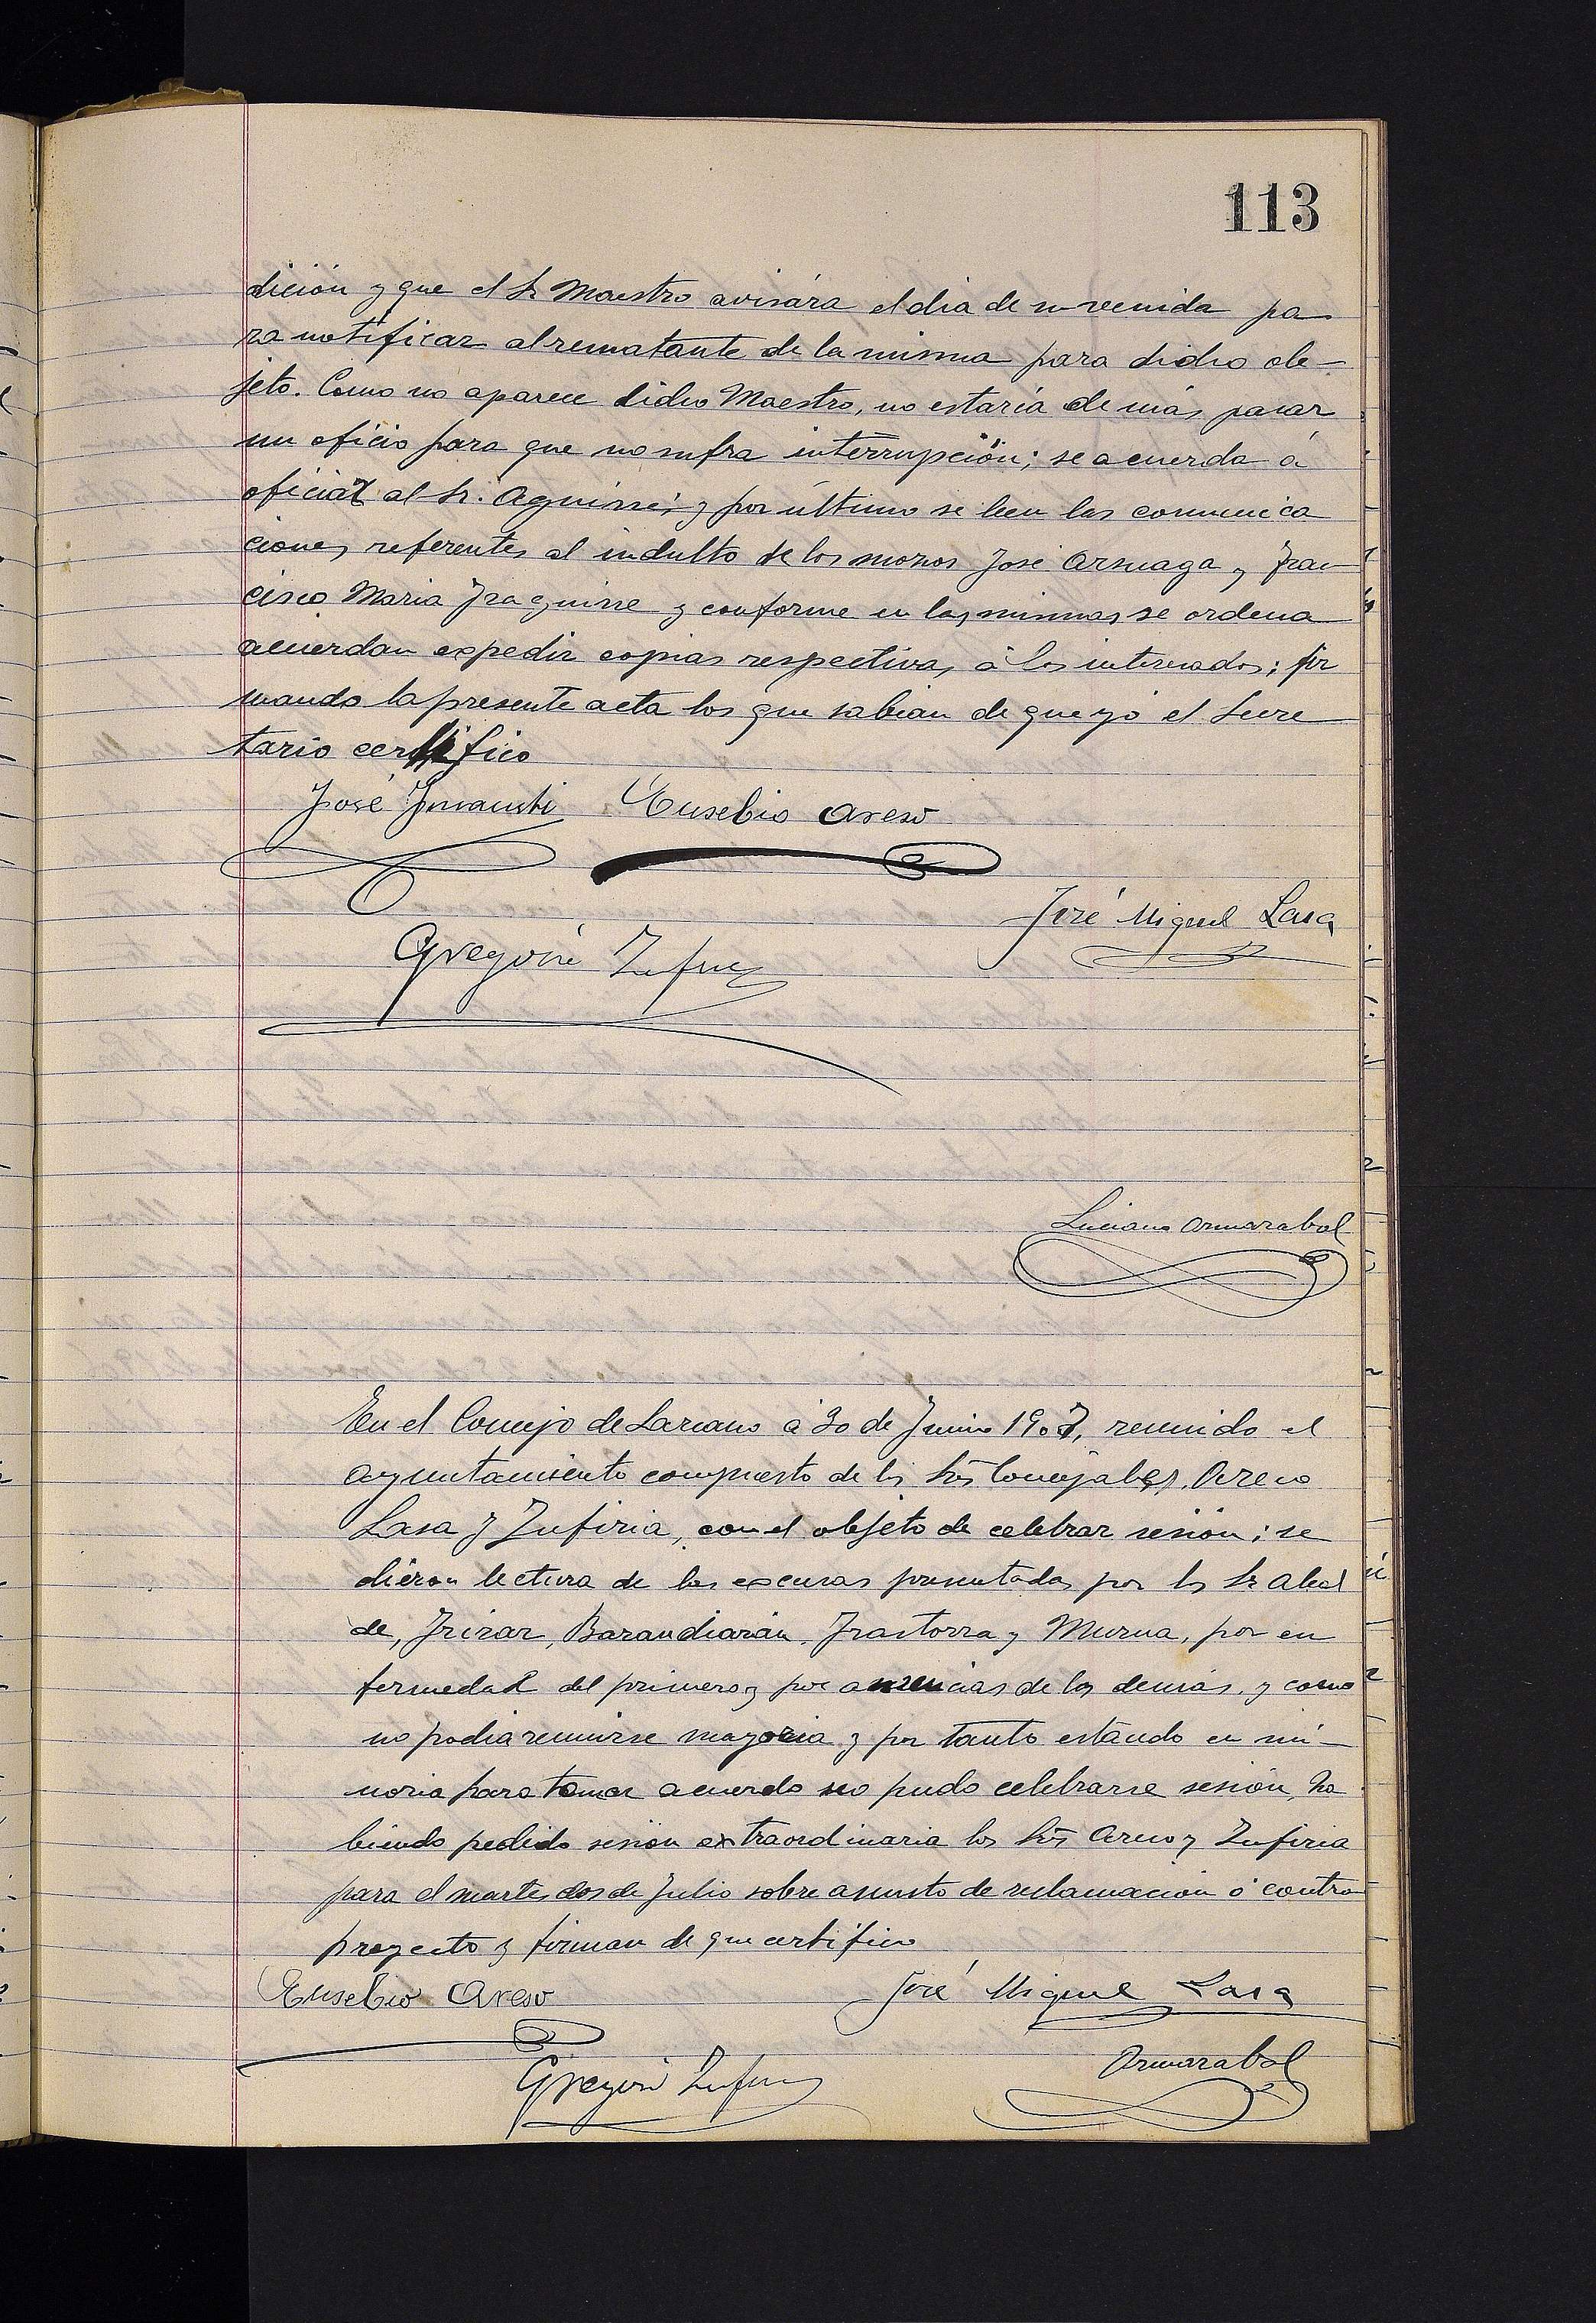 113
dición y que el Sr Maestro avisára el dia de su venida pa
ra notificar al rematante de la misma para dicho ob-
jeto. Como no aparece dicho Maestro, no estaría de más pasar
un oficio para que no sufra interrupción; se acuerda á
oficiar al Sr. Aguirre y por último se leen las comunica
ciones referentes al indulto de los mozos José Arsuaga y Fran
cisco Maria Izaguirre y conforme en las mismas se ordena
acuerdan expedir copias respectivas á los interesados; fir
mando la presente acta los que sabian de que yo el Secre
tario certifico
José Eusebio Areso
José Miguel Lasa
Gregorio
Luciano Ormazabal
En el Concejo de Lazcano á 30 de Junio 1907, reunido el
ayuntamiento compuesto de los Srs Concejales, Areso
Lasa y Zufiria, con el objeto de celebrar sesion; se
dieron lectura de las excusas presentadas por los Sr Alcal
de, Irizar, Barandiarán, Irastorza y Murua, por en
fermedad del primero y por ausencias de los demás, y como
no podia reunirse mayoria y por tanto estando en mi-
noria para tomar acuerdo no pudo celebrarse sesión, ha
biendo pedido sesión extraordinaria los Srs Areso y Zufiria
para el martes dos de Julio sobre asunto de reclamacion ó contra
proyecto y firman de que certifico
Eusebio Areso José Miguel Lasa
Gregorio Ormazabal